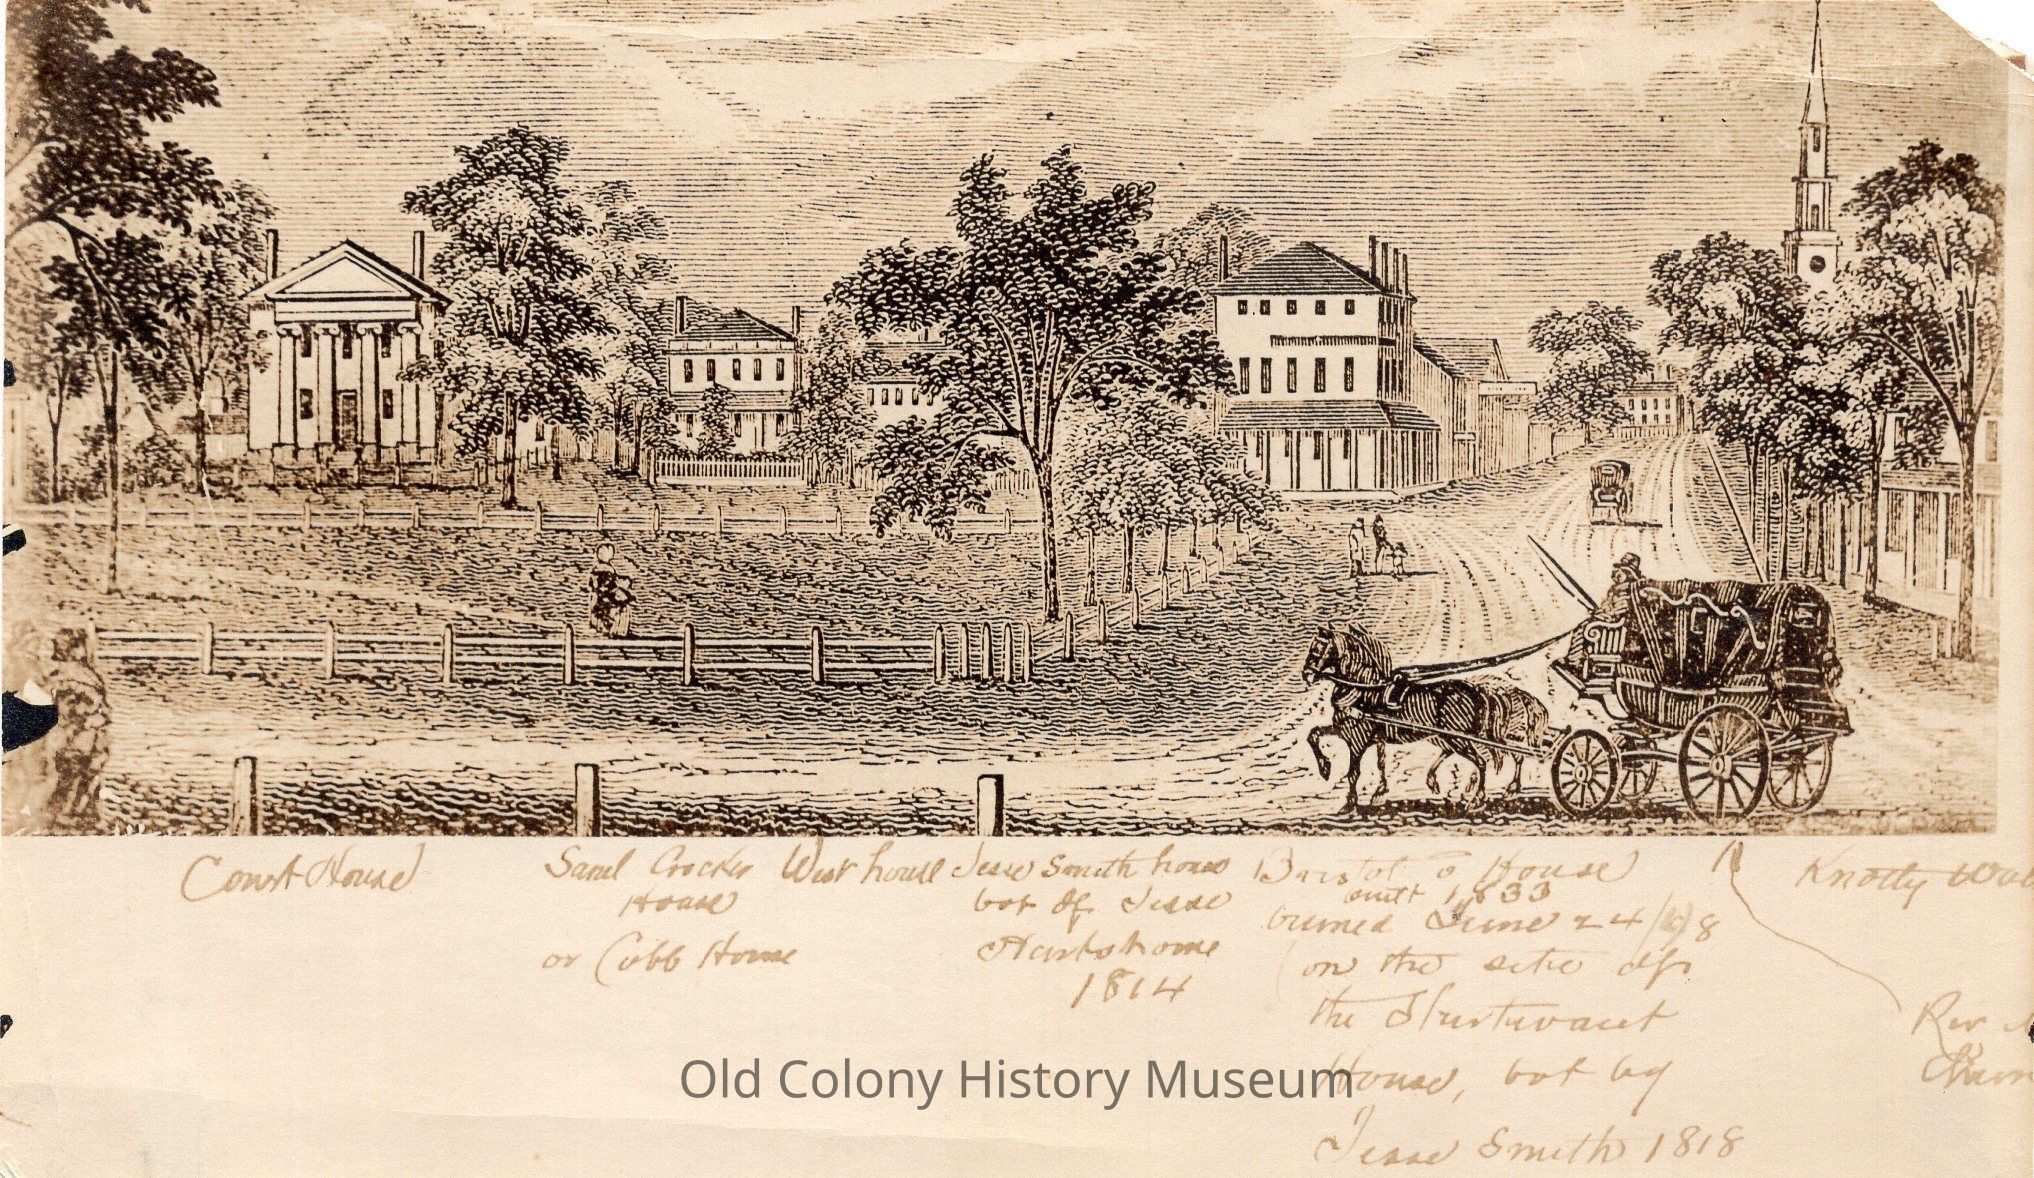 Court House
Saml Crocker
House
or Cobb House
West house
Jesse Smith house
bot of Jesse
Hartshorne
1814
Bristol Co House
built 1833
burned June 24
on the site of
the Sturtevant
House, bot by
Jesse Smith 1818
Knotty Wal
Rev
Old Colony History Museum